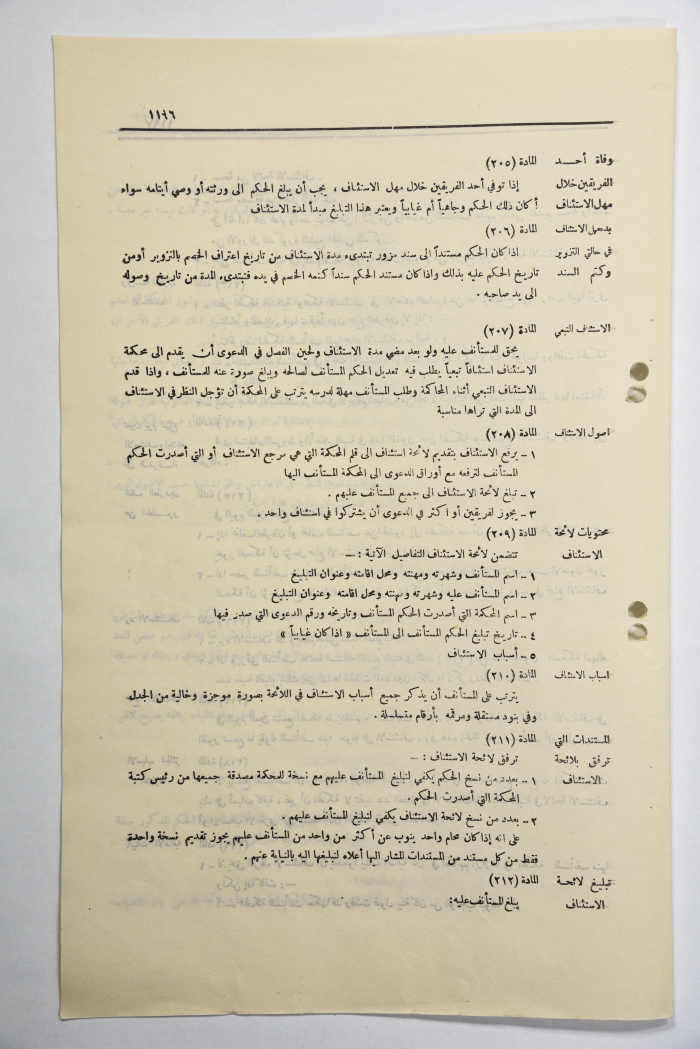 ١١٩٦
وفاة أحـــد المادة (٢٠٥)
الفريقين خلال إذا توفي أحد الفريقين خلال مهل الاستئناف ، يجب أن يبلغ الحكم الى ورثته أو وصي أيتامه سواء
مهل الاستئناف أكان ذلك الحكم وجاهياً أم غيابياً ويعتبر هذا التبليغ مبدأ لمدة الاستئناف
بدء مهل الاستئناف المادة (٢٠٦)
في حالتي التزوير اذا كان الحكم مستنداً الى سند مزور تبتدىء مدة الاستئناف من تاريخ اعتراف الخصم بالتزوير أو من
وكتم السند تاريخ الحكم عليه بذلك واذا كان مستند الحكم سنداً كتمه الخصم في يده فتبتدىء المدة من تاريخ وصوله
الى يد صاحبه .
الاستئناف التبعي المادة (٢٠٧)
يحق للمستأنف عليه ولو بعد مضي مدة الاستئناف ولحين الفصل في الدعوى أن يقدم الى محكمة
الاستئناف استئنافاً تبعياً يطلب فيه تعديل الحكم المستأنف لصالحه ويبلغ صورة عنه للمستأنف ، واذا قدم
الاستئناف التبعي أثناء المحاكمة وطلب المستأنف مهلة لدرسه يترتب على المحكمة أن تؤجل النظر في الاستئناف
الى المدة التي تراها مناسبة
اصول الاستئناف المادة (٢٠٨)
١ – يرفع الاستئناف بتقديم لائحة استئناف الى قلم المحكمة التي هي مرجع الاستئناف أو التي أصدرت الحكم
المستأنف لترفعه مع أوراق الدعوى الى المحكمة المستأنف اليها
٢ – تبلغ لائحة الاستئناف الى جميع المستأنف عليهم .
٣ – يجوز لفريقين أو اكثر في الدعوى أن يشتركوا في استئناف واحد .
محتويات لائحة المادة (٢٠٩)
الاستئناف تتضمن لائحة الاستئناف التفاصيل الآتية : —
١ – اسم المستأنف وشهرته ومهنته ومحل اقامته وعنوان التبليغ
٢ – اسم المستأنف عليه وشهرته ومهنته ومحل اقامته وعنوان التبليغ
٣ – اسم المحكمة التي أصدرت الحكم المستأنف وتاريخه ورقم الدعوى التي صدر فيها
٤ – تاريخ تبليغ الحكم المستأنف الى المستأنف « اذا كان غيابياً »
٥ – أسباب الاستئناف
اسباب الاستئناف المادة (٢١٠)
يترتب على المستأنف أن يذكر جميع أسباب الاستئناف في اللائحة بصورة موجزة وخالية من الجدل
وفي بنود مستقلة ومرقمه بأرقام متسلسلة .
المستندات التي المادة (٢١١)
ترفق بلائحة ترفق لائحة الاستئناف : —
الاستئناف ١ – بعدد من نسخ الحكم يكفي لتبليغ المستأنف عليهم مع نسخة للمحكمة مصدقة جميعها من رئيس كتبة
المحكمة التي أصدرت الحكم .
٢ – بعدد من نسخ لائحة الاستئناف يكفي لتبليغ المستأنف عليهم .
على انه إذا كان محام واحد ينوب عن أكثر من واحد من المستأنف عليهم يجوز تقديم نسخة واحدة
فقط من كل مستند من المستندات المشار اليها أعلاه لتبليغها اليه بالنيابة عنهم .
تبليغ لائحــة المادة (٢١٢)
الاستئناف يبلغ المستأنف عليه :